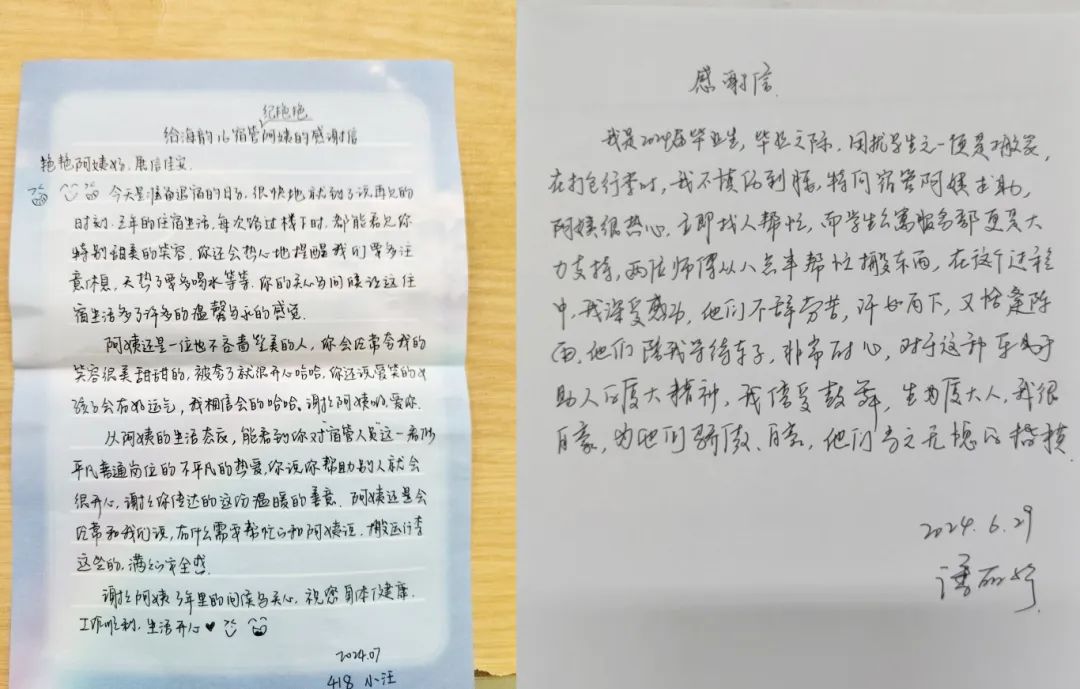 纪艳艳
给海韵16宿管阿姨的感谢信
艳艳阿姨好，展信佳安
今天是准备退宿的日子，很快地就到了说再见的
时刻.三年的住宿生活,每次路过楼下时,都能看见你
特别甜美的笑容.你还会热心地提醒我们要多注
意休息,天热了要多喝水等等.你的关心与问候让这住
宿生活多了许多的温馨与
的感觉.
阿姨还是一位也不吝啬赞美的人，你会经常夸我的
笑容很美甜甜的，被夸了就很开心哈哈.你还说爱笑的女
孩子会有好运气，我相信会的哈哈.谢谢阿姨呀,爱你.
从阿姨的生活态度,能看到你对宿管人员这一看似
平凡普通岗位的不平凡的热爱,你说你帮助别人就会
很开心,谢谢你传达的这份温暖的善意.阿姨还是会
经常和我们说,有什么需要帮忙的和阿姨说.搬运行李
这些的,满满安全感.
谢谢阿姨3年里的问候与关心,祝您身体健康.
工作顺利,生活开心♥
2024.07
418 小汪
感谢信
我是2024届毕业生,毕业之际,困扰学生之一便是搬家,
在打包行李时,我不慎伤到腰,特向宿管阿姨求助,
阿姨很热心,立即找人帮忙,而学生公寓服务部更是大
力支持,两位师傅从八点半帮忙搬东西,在这个过程
中,我深受感动,他们不辞劳苦,汗如雨下,又恰逢阵
雨,他们陪我等待车子,非常耐心,对于这种乐于
助人的厦大精神,我倍受鼓舞,生为厦大人,我很
自豪,为他们骄傲、自豪,他们当之无愧的楷模
2024.6.29